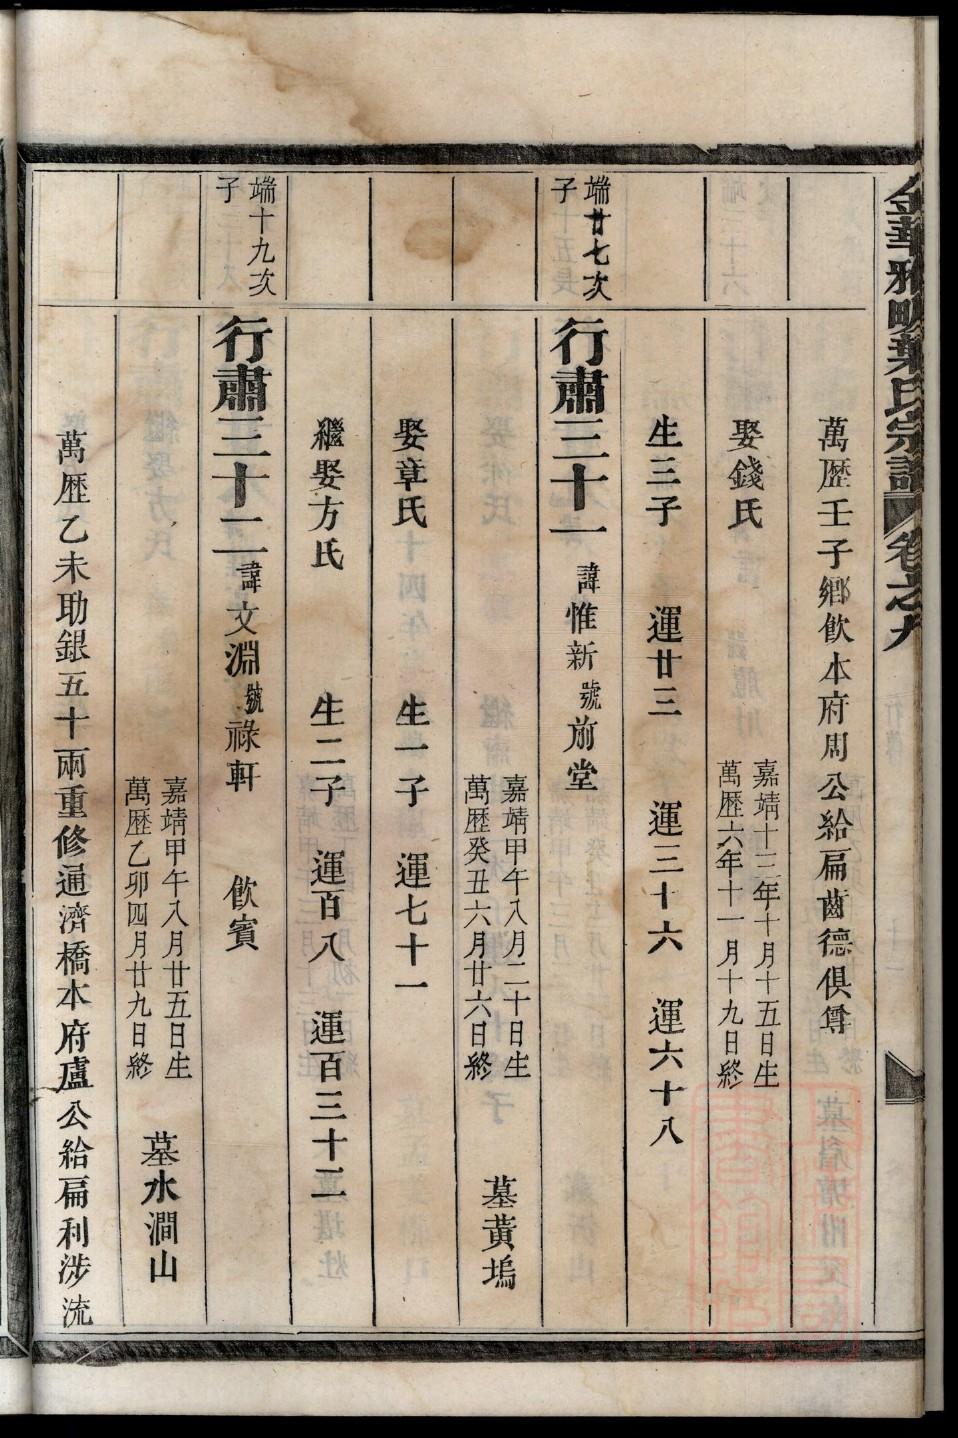 金華雅畈葉氏宗譜 卷之九
萬歷壬子鄉飲本府周公給扁齒德俱尊
娶錢氏 嘉靖十三年十月十五日生
萬歷六年十一月十九日終
生三子 運廿三 運三十六 運六十八
端廿七次
子
行肅三十一 諱惟新 號前堂
嘉靖甲午八月二十日生
萬歷癸丑六月廿六日終
墓黃塢
娶章氏 生一子 運七十一
繼娶方氏 生二子 運百八 運百三十二
端十九次
子
行肅三十二 諱文淵 號祿軒 飲賓
嘉靖甲午八月廿五日生
萬歷乙卯四月廿九日終
墓水澗山
萬歷乙未助銀五十兩重修通濟橋本府盧公給扁利涉流